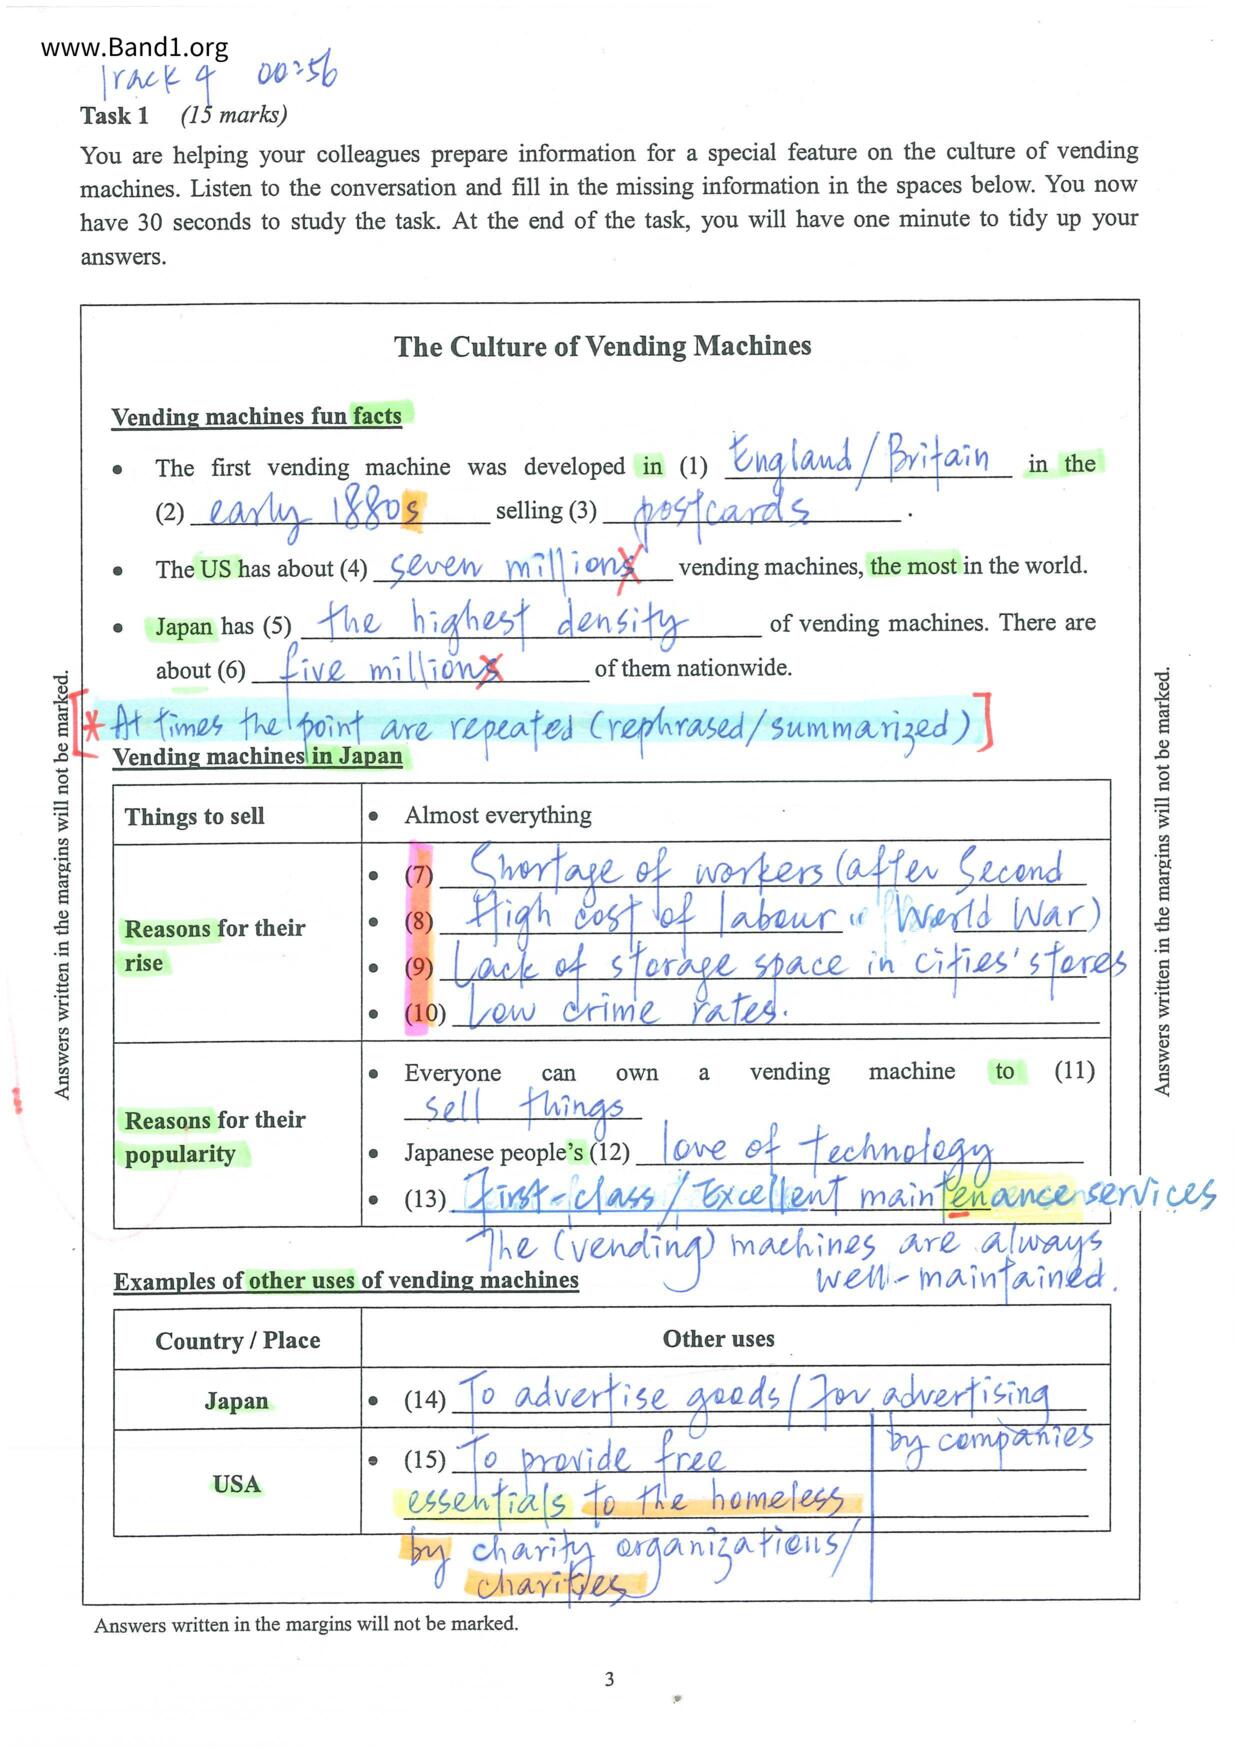 www.Band1.org
Track 4 00:56
Task 1 (15 marks)
You are helping your colleagues prepare information for a special feature on the culture of vending
machines. Listen to the conversation and fill in the missing information in the spaces below. You now
have 30 seconds to study the task. At the end of the task, you will have one minute to tidy up your
answers.
The Culture of Vending Machines
Vending machines fun facts
• The first vending machine was developed in (1) England/Britain in the
(2) early 1880s selling (3) postcards.
• The US has about (4) seven millions vending machines, the most in the world.
• Japan has (5) the highest density of vending machines. There are
about (6) five millions of them nationwide.
[* At times the point are repeated (rephrased/summarized)]
Vending machines in Japan
Things to sell
• Almost everything
Reasons for their
rise
• (7) Shortage of workers (after Second
World War)
• (8) High cost of labour
• (9) Lack of storage space in cities' stores
• (10) Low crime rates.
Reasons for their
popularity
• Everyone can own a vending machine to (11)
sell things
• Japanese people's (12) love of technology
• (13) First-class/Excellent maintenance services
The (vending) machines are always
well-maintained.
Examples of other uses of vending machines
Country / Place Other uses
Japan
• (14) To advertise goods/for advertising
by companies
USA
• (15) To provide free
essentials to the homeless
by charity organizations/
charities
Answers written in the margins will not be marked.
Answers written in the margins will not be marked.
Answers written in the margins will not be marked.
3